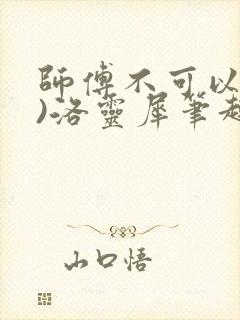 師傅不可以
)洛靈犀筆趣
山口悟